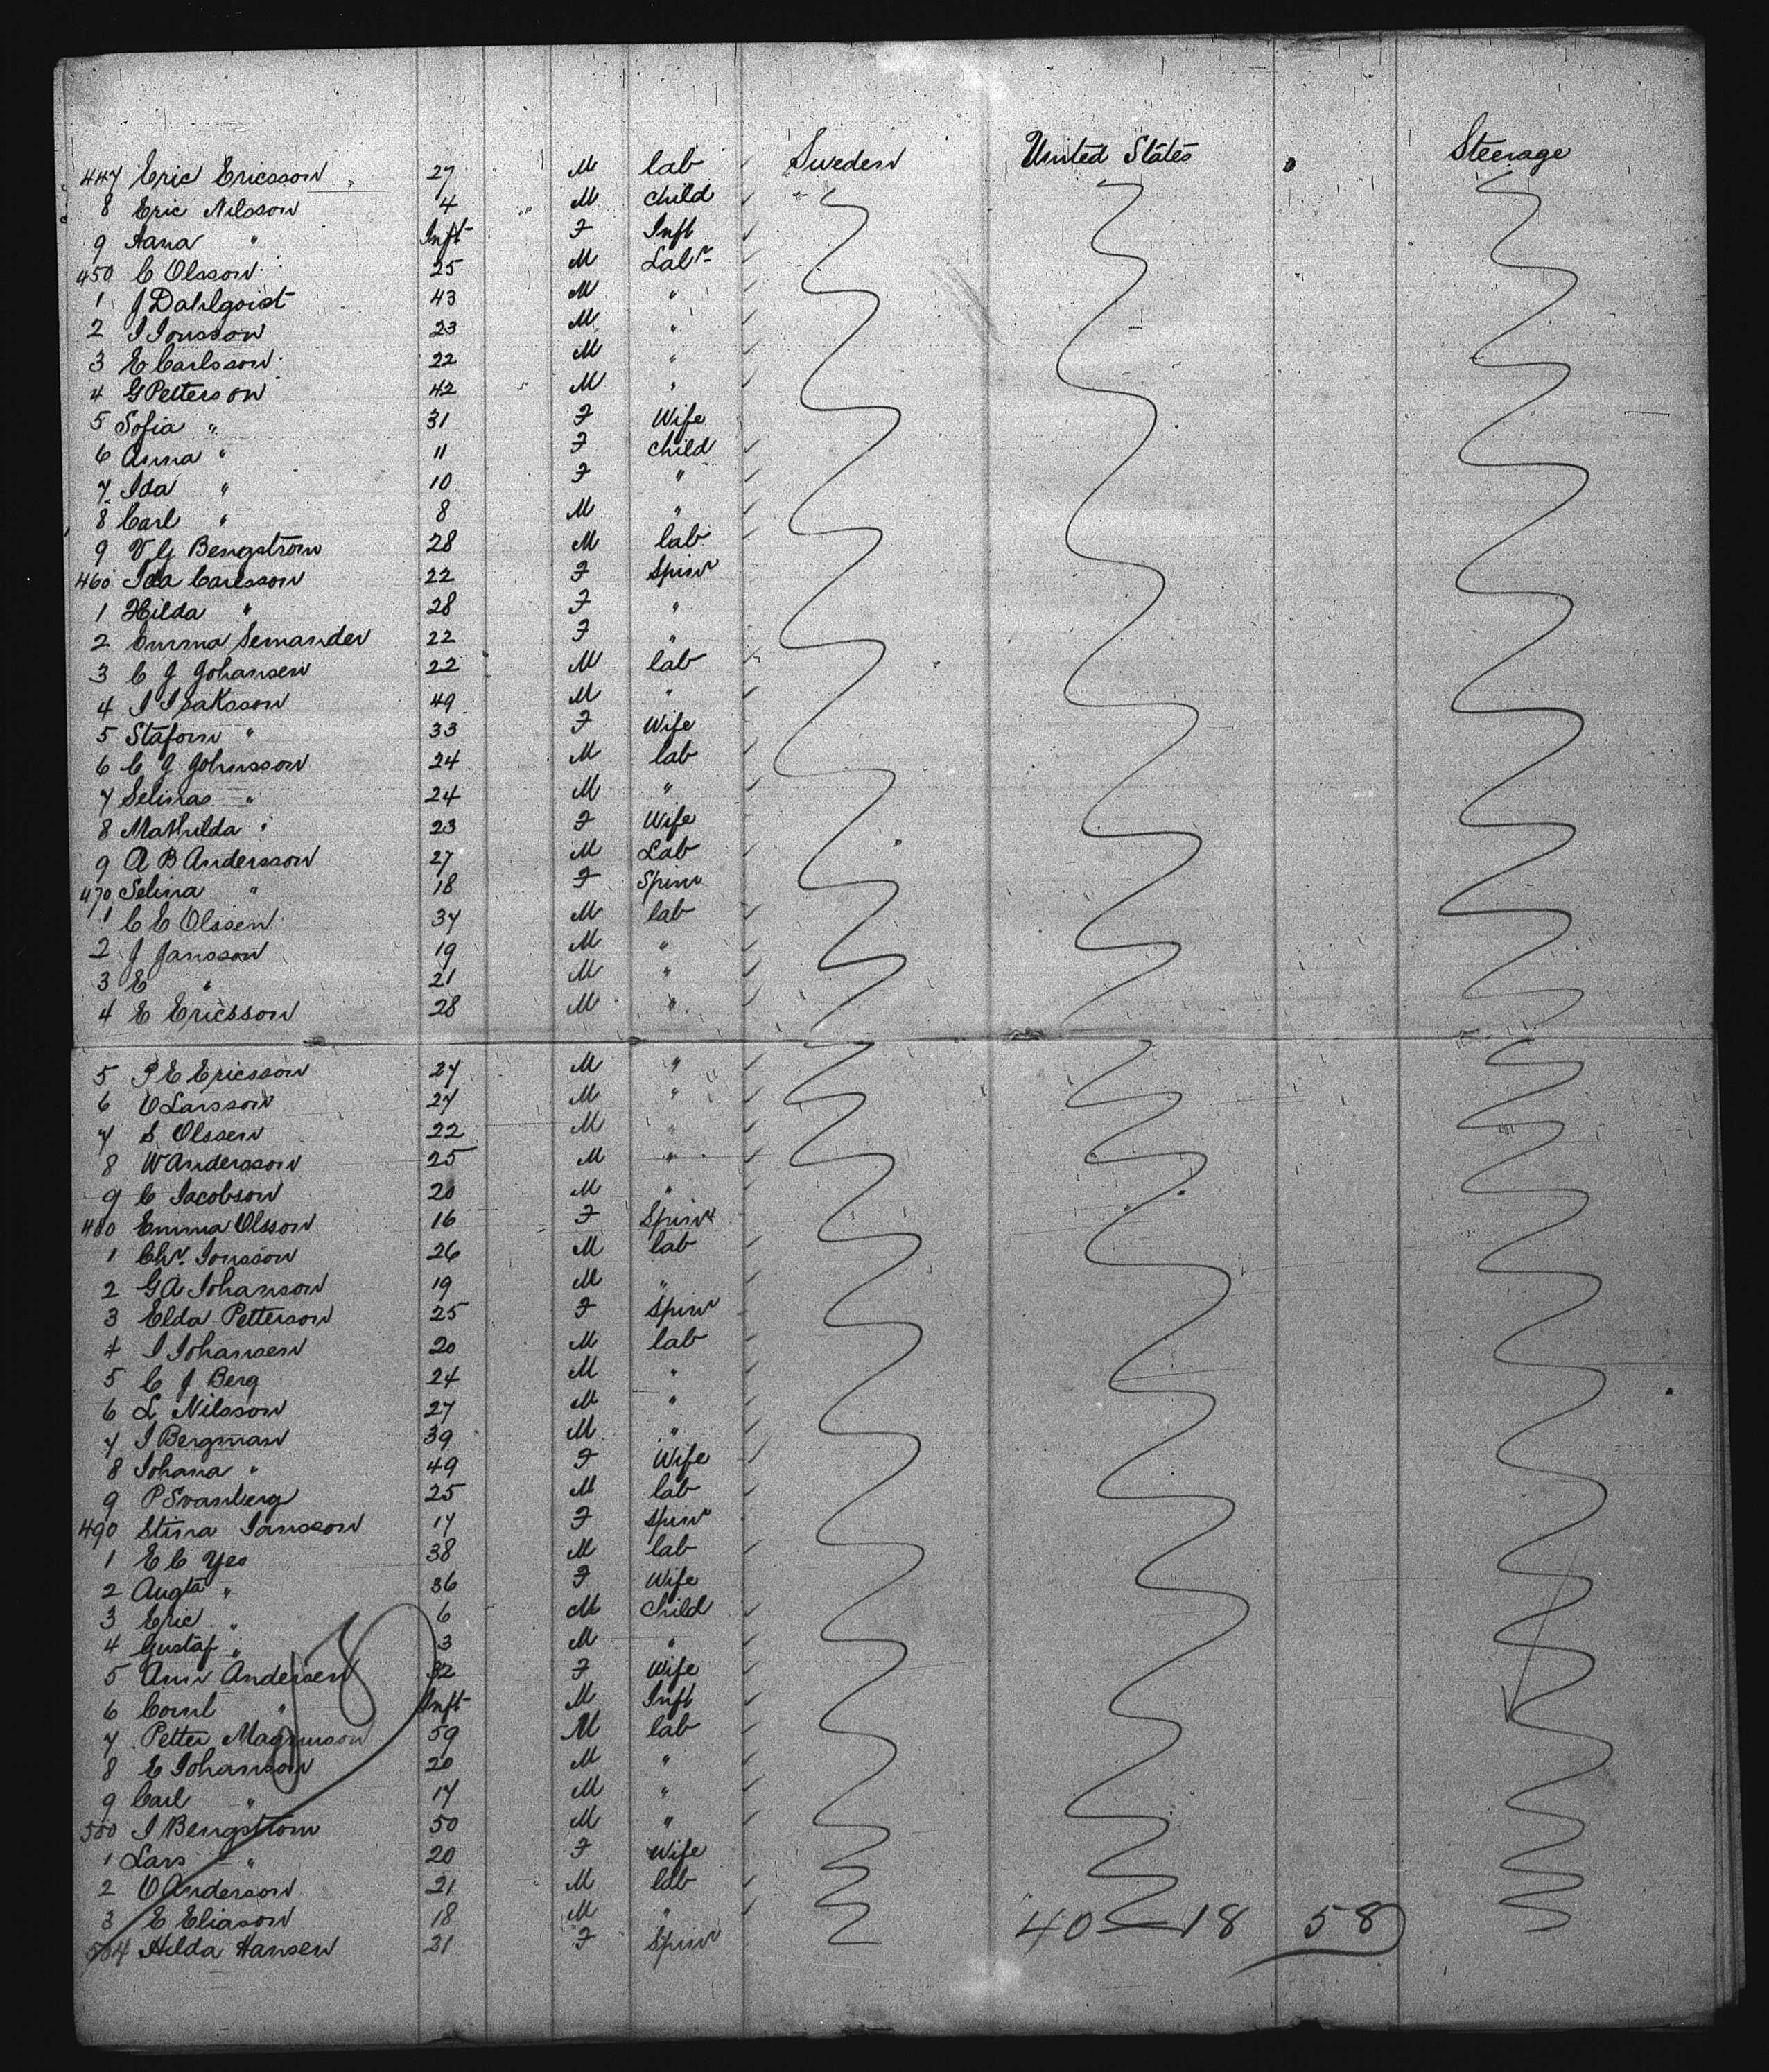 447 Eric Ericsson 27 M lab Sweden United States Steerage
8 Eric Nilsson 4 M child
9 Aana " Inft F Inft
450 C Olsson 25 M Labr
1 J Dahlqvist 43 M "
2 I Ionsson 23 M "
3 E Carlsson 22 M "
4 G Petterson 42 M "
5 Sofia " 31 F Wife
6 Anna " 11 F child
7 Ida " 10 F "
8 Carl " 8 M "
9 V G Bengstrom 28 M lab
460 Ida Carlsson 22 F Spinr
1 Hilda " 28 F "
2 Emma Semander 22 F "
3 C J Johansen 22 M lab
4 I Isaksson 49 M "
5 " 33 F Wife
6 C J Johnsson 24 M lab
7 Selinas " 24 M "
8 Mathilda " 23 F Wife
9 A B Andersson 27 M Lab
470 Selina " 18 F Spinr
1 C E Olssen 37 M lab
2 J Jansson 19 M "
3 E " 21 M "
4 E Ericsson 28 M "
5 P E Ericsson 27 M "
6 O Larsson 27 M "
7 S Olssen 22 M "
8 W Andersson 25 M "
9 C Jacobson 20 M "
480 Emma Olsson 16 F Spinr
1 Chr. Ionsson 26 M lab
2 G A Johanson 19 M "
3 Elda Petterson 25 F Spinr
4 I Johansen 20 M lab
5 C J Berg 24 M "
6 L Nilsson 27 M "
7 I Bergman 39 M "
8 Johana " 49 F Wife
9 P Svanberg 25 M lab
490 Stina Jansson 17 F Spinr
1 E C Yes 38 M lab
2 Augta " 36 F Wife
3 Eric " 6 M Child
4 Gustaf " 3 M "
5 Ann Andersen 32 F Wife
6 " Inft M Inft
7 Petter Magnuson 59 M lab
8 E Johanson 20 M "
9 Carl " 17 M "
500 I Bengstrom 50 M "
1 Lars " 20 F Wife
2 O Anderson 21 M lab
3 E Eliason 18 M "
504 Hilda Hansen 21 F Spinr
40 — 18 58